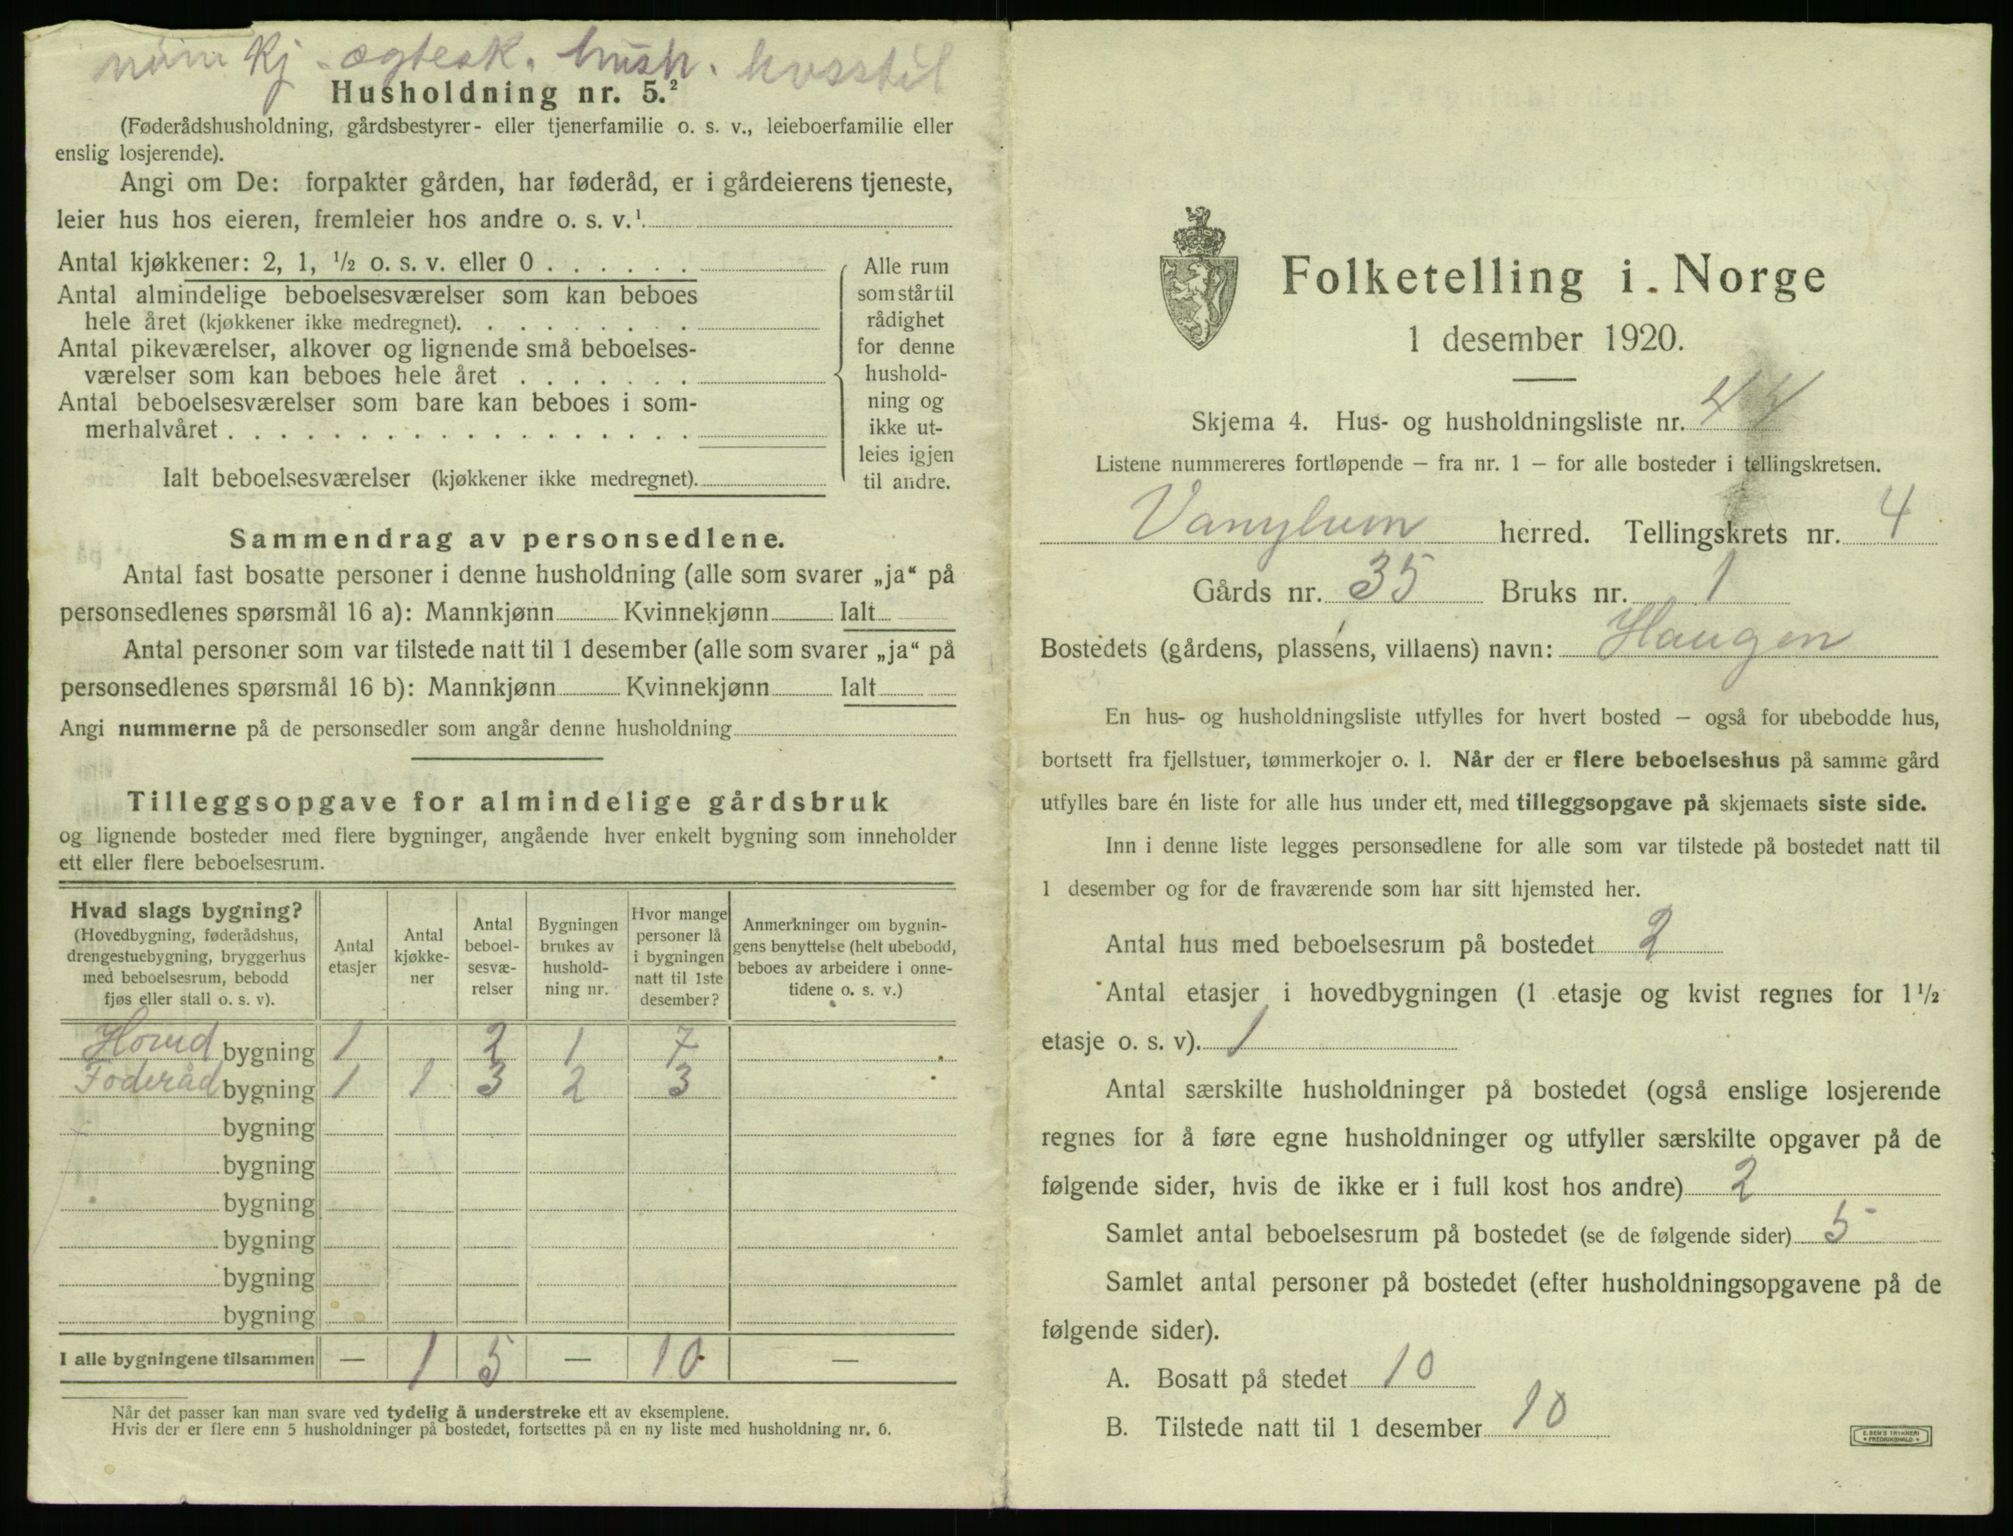 kj. ægtesk. hush. husstil
Husholdning nr. 5.²
(Føderådshusholdning, gårdsbestyrer- eller tjenerfamilie o. s. v., leieboerfamilie eller
enslig losjerende).
Angi om De: forpakter gården, har føderåd, er i gårdeierens tjeneste,
leier hus hos eieren, fremleier hos andre o. s. v.¹
Antal kjøkkener: 2, 1, ½ o. s. v. eller 0
Antal almindelige beboelsesværelser som kan beboes
hele året (kjøkkener ikke medregnet).
Antal pikeværelser, alkover og lignende små beboelses-
værelser som kan beboes hele året
Antal beboelsesværelser som bare kan beboes i som-
merhalvåret
Ialt beboelsesværelser (kjøkkener ikke medregnet).
Alle rum
som står til
rådighet
for denne
hushold-
ning og
ikke ut-
leies igjen
til andre.
Sammendrag av personsedlene.
Antal fast bosatte personer i denne husholdning (alle som svarer „ja“ på
personsedlenes spørsmål 16 a): Mannkjønn Kvinnekjønn Ialt
Antal personer som var tilstede natt til 1 desember (alle som svarer „ja“ på
personsedlenes spørsmål 16 b): Mannkjønn Kvinnekjønn Ialt
Angi nummerne på de personsedler som angår denne husholdning
Tilleggsopgave for almindelige gårdsbruk
og lignende bosteder med flere bygninger, angående hver enkelt bygning som inneholder
ett eller flere beboelsesrum.
Hvad slags bygning?
(Hovedbygning, føderådshus,
drengestuebygning, bryggerhus
med beboelsesrum, bebodd
fjøs eller stall o. s. v).
Antal
etasjer
Antal
kjøkke-
ner
Antal
beboel-
sesvæ-
relser
Bygningen
brukes av
hushold-
ning nr.
Hvor mange
personer lå
i bygningen
natt til 1ste
desember?
Anmerkninger om bygnin-
gens benyttelse (helt ubebodd,
beboes av arbeidere i onne-
tidene o. s. v.)
Hovud bygning 1 2 1 7
Føderåd bygning 1 1 3 2 3
bygning
bygning
bygning
bygning
bygning
bygning
I alle bygningene tilsammen — 1 5 — 10 —
Når det passer kan man svare ved tydelig å understreke ett av eksemplene.
Hvis der er flere enn 5 husholdninger på bostedet, fortsettes på en ny liste med husholdning nr. 6.
Folketelling i Norge
1 desember 1920.
Skjema 4. Hus- og husholdningsliste nr. 44
Listene nummereres fortløpende – fra nr. 1 – for alle bosteder i tellingskretsen.
Vanylven herred. Tellingskrets nr. 4
Gårds nr. 35 Bruks nr. 1
Bostedets (gårdens, plassens, villaens) navn: Haugen
En hus- og husholdningsliste utfylles for hvert bosted – også for ubebodde hus,
bortsett fra fjellstuer, tømmerkojer o. l. Når der er flere beboelseshus på samme gård
utfylles bare én liste for alle hus under ett, med tilleggsopgave på skjemaets siste side.
Inn i denne liste legges personsedlene for alle som var tilstede på bostedet natt til
1 desember og for de fraværende som har sitt hjemsted her.
Antal hus med beboelsesrum på bostedet 2
Antal etasjer i hovedbygningen (1 etasje og kvist regnes for 1½
etasje o. s. v). 1
Antal særskilte husholdninger på bostedet (også enslige losjerende
regnes for å føre egne husholdninger og utfyller særskilte opgaver på de
følgende sider, hvis de ikke er i full kost hos andre) 2
Samlet antal beboelsesrum på bostedet (se de følgende sider) 5
Samlet antal personer på bostedet (efter husholdningsopgavene på de
følgende sider).
A. Bosatt på stedet 10
B. Tilstede natt til 1 desember 10
E. SEM'S TRYKKERI
FREDRIKSHALD